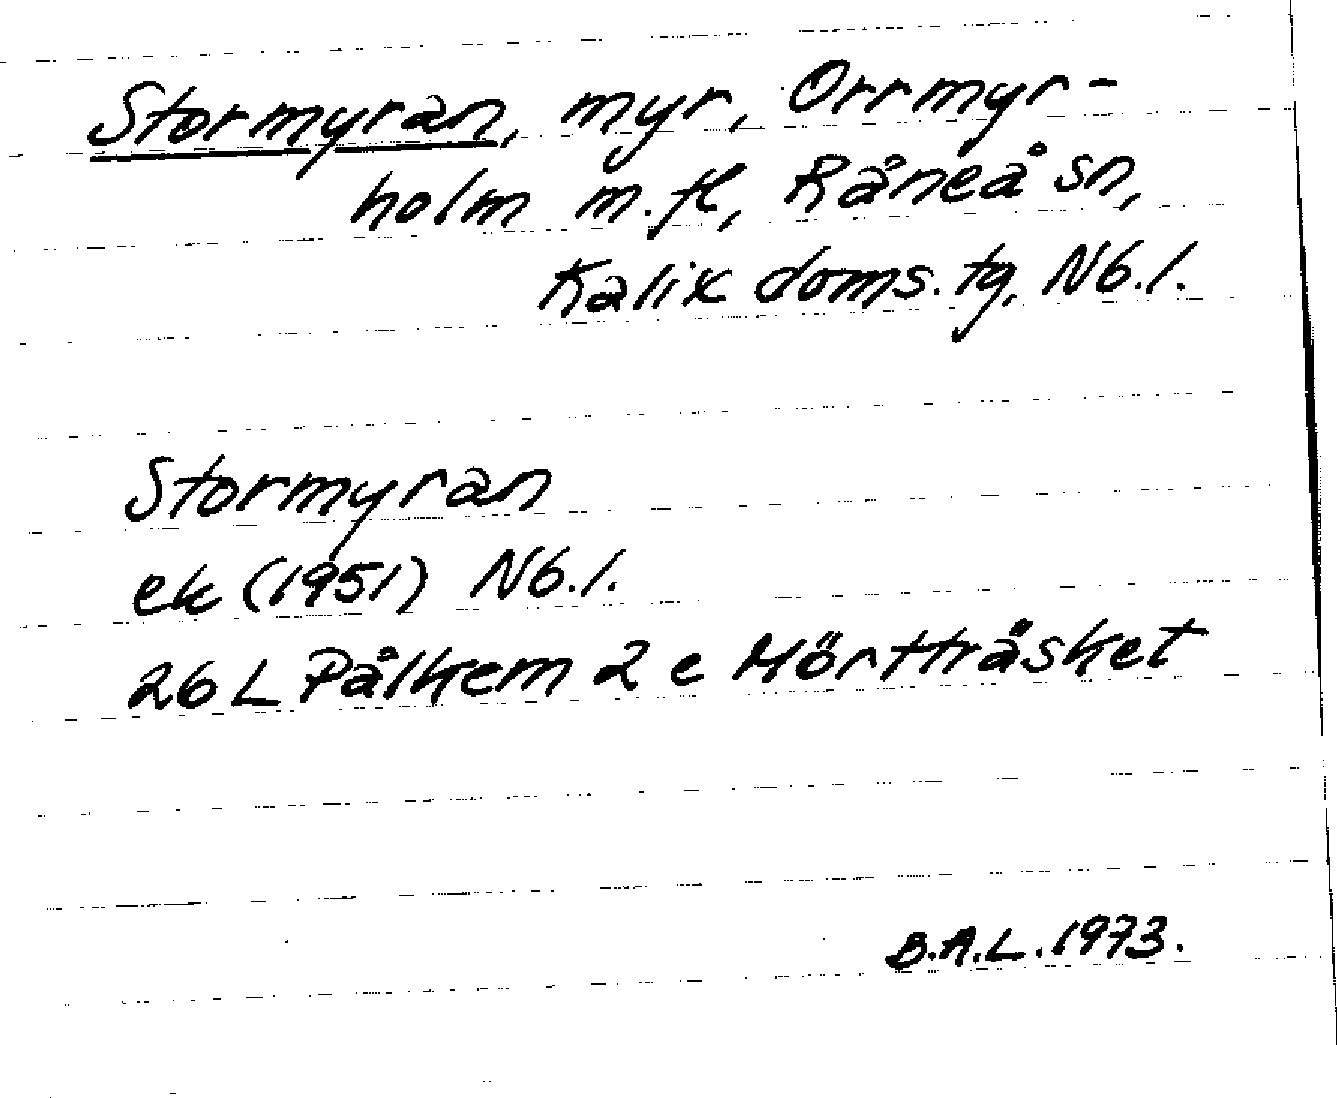 Stormyran, myr, Orrmyr-
holm m.fl, Råneå sn,
Kalix doms.tg, Nb.l.
Stormyran
ek (1951) Nb.l.
26 L Pålkem 2 e Mörtträsket
B.A.L. 1973.